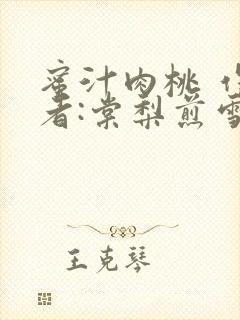 蜜汁肉桃 作
者:棠梨煎雪
王克琴